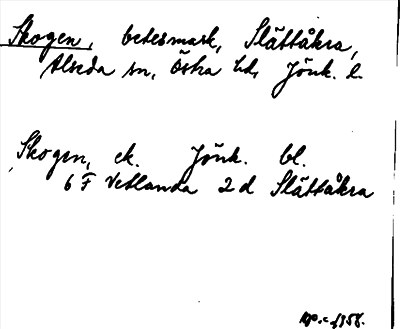 Skogen, betesmark, Slättåkra,
Alseda sn, Östra hd, Jönk. l.
Skogen, ek. Jönk. bl.
6 F Vetlanda 2 d Slättåkra